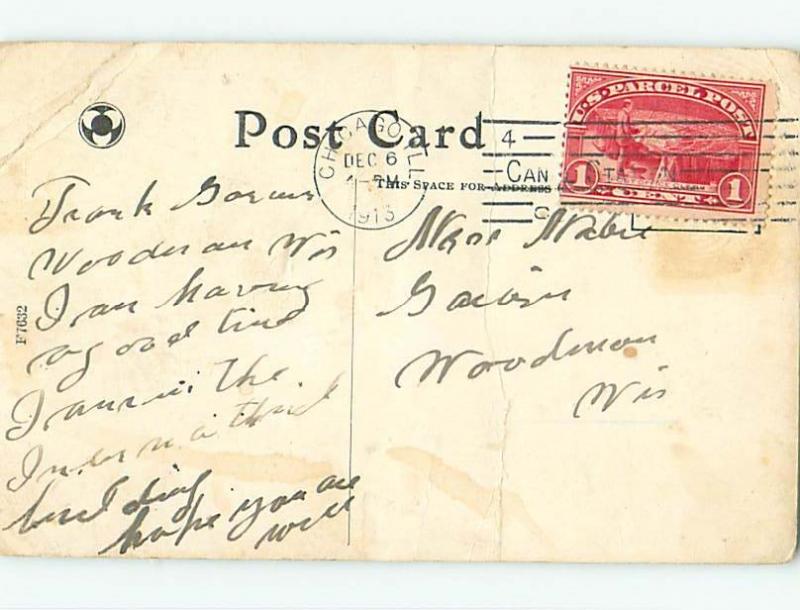 Post Card
CHICAGO, ILL.
DEC 6
4-PM
1913
4
CAN
THIS SPACE FOR ADDRESS
U.S. PARCEL POST
1 CENT 1
F7632
Frank
Woodman Wis
I am having
a good time
I am in the
International
building
hope you are
well
Mabel
Woodman
Wis